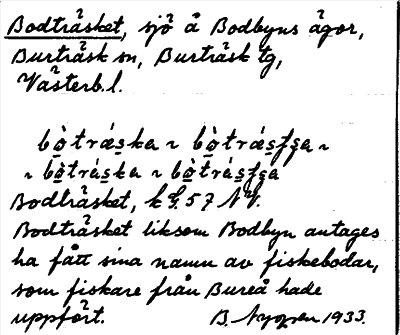 Bodträsket, sjö å Bodbyns ägor,
Burträsk sn, Burträsk tg,
Västerb. l.
bò̱träs̱ka ~ bò̱trás̱ʃʃa ~
~ bò̱tráska ~ bò̱trás̱ʃʃa
Bodträsket, k 57 NV.
Bodträsket liksom Bodbyn antages
ha fått sina namn av fiskebodar,
som fiskare från Bureå hade
uppfört. B. Nygren 1933.